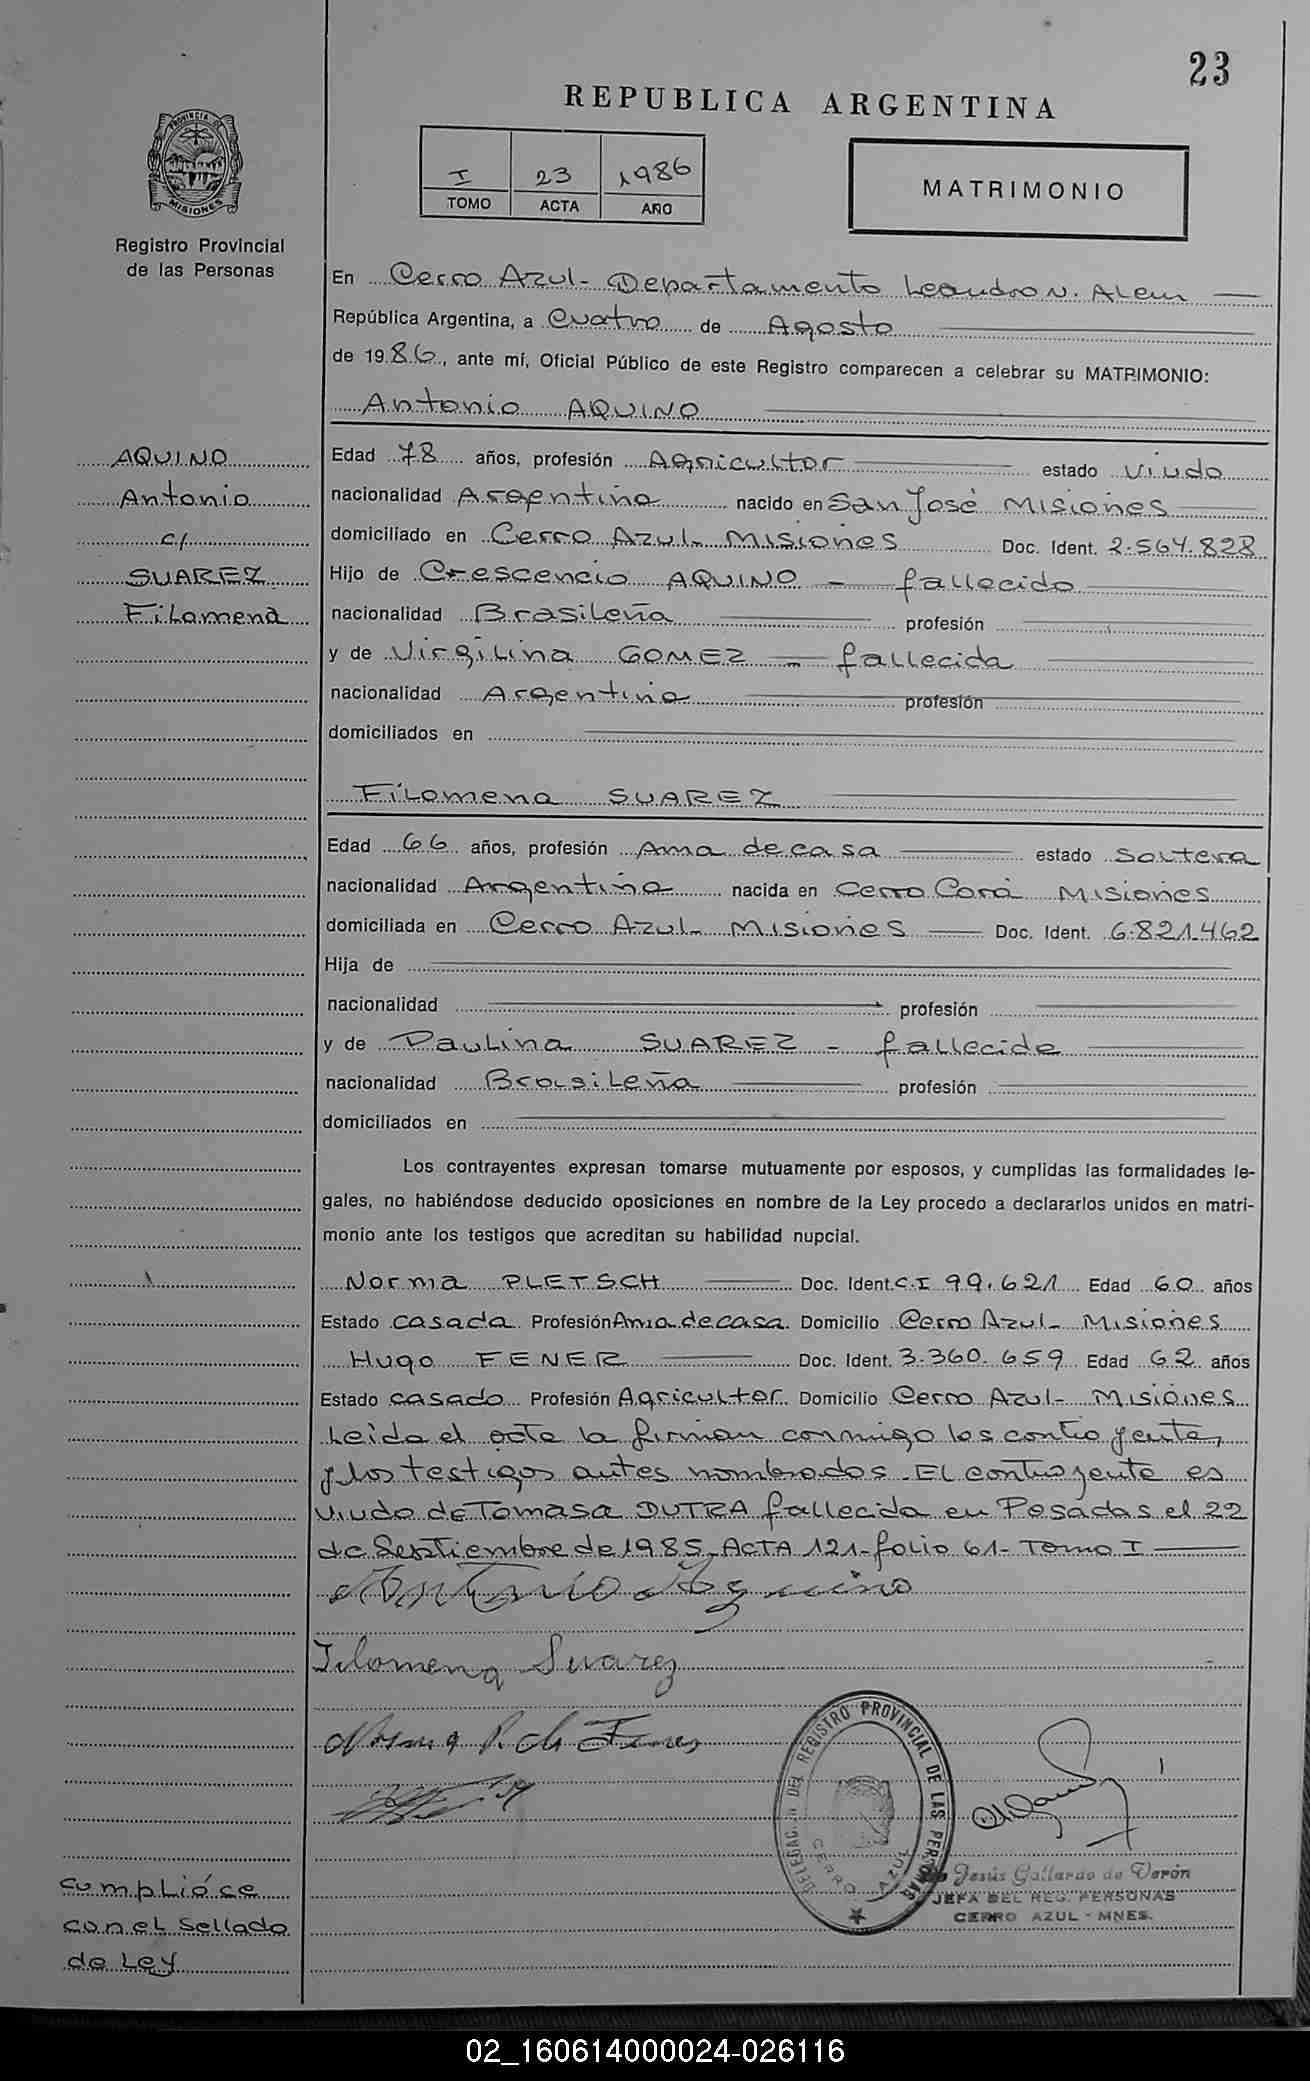 23
REPUBLICA ARGENTINA
PROVINCIA DE
MISIONES
Registro Provincial
de las Personas
I 23 1986
TOMO ACTA AÑO
MATRIMONIO
En Cerro Azul - Departamento Leandro N. Alem
República Argentina, a Cuatro de Agosto
de 1986, ante mí, Oficial Público de este Registro comparecen a celebrar su MATRIMONIO:
Antonio AQUINO
AQUINO
Antonio
c/
SUAREZ
Filomena
Edad 78 años, profesión Agricultor estado viudo
nacionalidad Argentina nacido en San José Misiones
domiciliado en Cerro Azul - Misiones Doc. Ident. 2.564.828
Hijo de Crescencio AQUINO - fallecido
nacionalidad Brasileña profesión
y de Virgilina GOMEZ - fallecida
nacionalidad Argentina profesión
domiciliados en
Filomena SUAREZ
Edad 66 años, profesión Ama de casa estado soltera
nacionalidad Argentina nacida en Cerro Corá Misiones
domiciliada en Cerro Azul - Misiones Doc. Ident. 6.821.462
Hija de
nacionalidad profesión
y de Paulina SUAREZ - fallecida
nacionalidad Brasileña profesión
domiciliados en
Los contrayentes expresan tomarse mutuamente por esposos, y cumplidas las formalidades le-
gales, no habiéndose deducido oposiciones en nombre de la Ley procedo a declararlos unidos en matri-
monio ante los testigos que acreditan su habilidad nupcial.
Norma PLETSCH Doc. Ident. C.I 99.621 Edad 60 años
Estado casada Profesión Ama de casa Domicilio Cerro Azul - Misiones
Hugo FENER Doc. Ident. 3.360.659 Edad 62 años
Estado casado Profesión Agricultor Domicilio Cerro Azul - Misiones
Leida el acta la firman conmigo los contrayente,
y los testigos antes nombrados. El contrayente es
viudo de Tomasa DUTRA fallecida en Posadas el 22
de Septiembre de 1985 - ACTA 121 - folio 61 - Tomo I
Antonio Aquino
Filomena Suarez
Norma P. de Fener
DELEGAC. DEL REGISTRO PROVINCIAL DE LAS PERSONAS
CERRO AZUL
Jesús Gallardo de Verón
JEFA DEL REG. PERSONAS
CERRO AZUL - MNES.
cumplióce
con el Sellado
de Ley
02_160614000024-026116